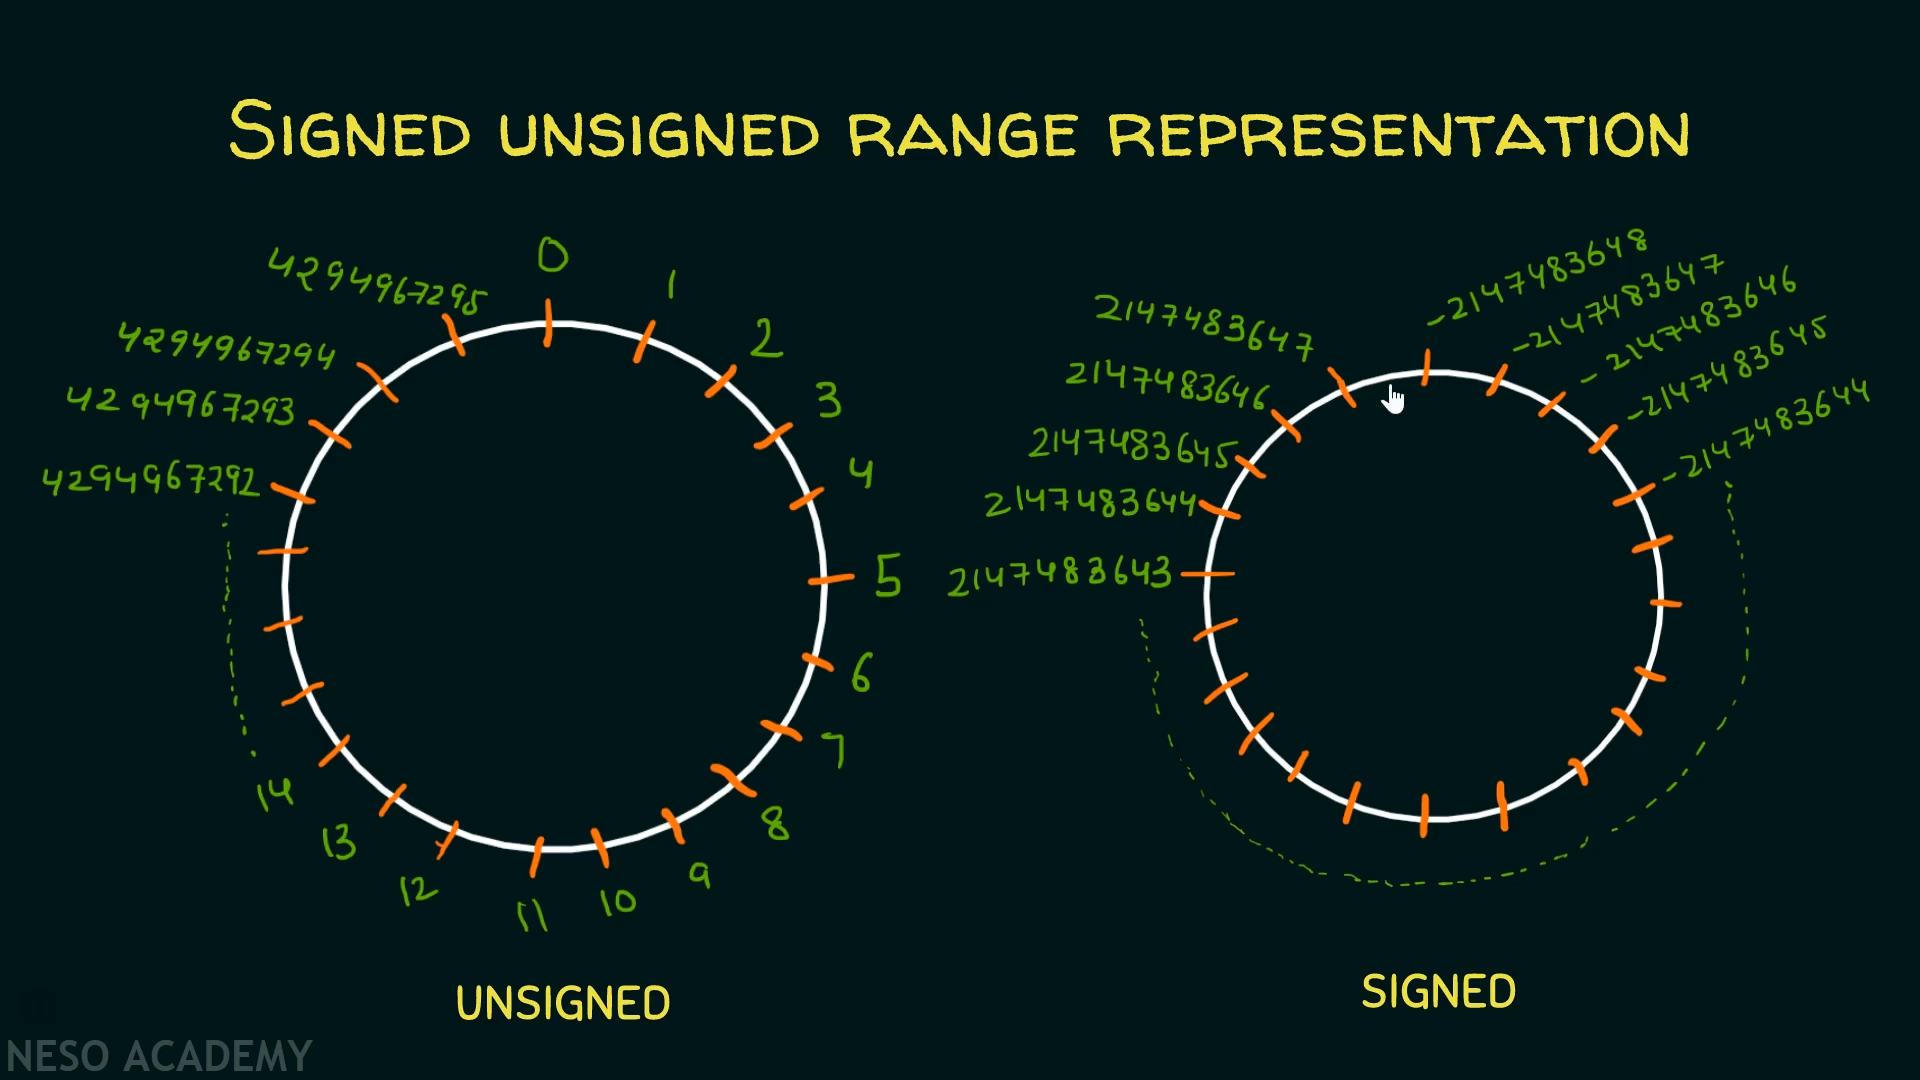 Signed unsigned range representation
0
1
2
3
4
5
6
7
8
9
10
11
12
13
14
4294967292
4294967293
4294967294
4294967295
UNSIGNED
-2147483648
-2147483647
-2147483646
-2147483645
-2147483644
2147483643
2147483644
2147483645
2147483646
2147483647
SIGNED
NESO ACADEMY